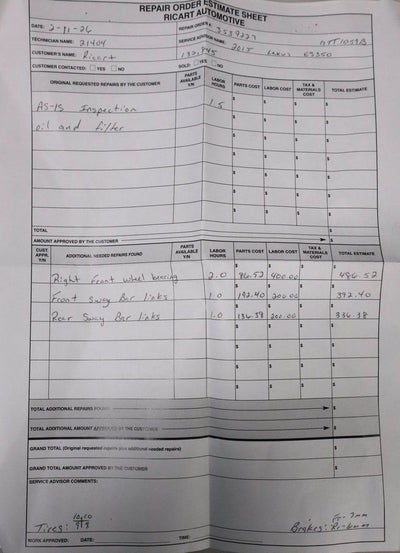 REPAIR ORDER ESTIMATE SHEET
RICART AUTOMOTIVE
DATE: 2-11-26 REPAIR ORDER #:
TECHNICIAN NAME: 21404 SERVICE ADVISOR NAME: 2015 Lexus ES350
CUSTOMER'S NAME: Ricart
CUSTOMER CONTACTED: YES NO SOLD: YES NO
ORIGINAL REQUESTED REPAIRS BY THE CUSTOMER PARTS AVAILABLE Y/N LABOR HOURS PARTS COST LABOR COST TAX & MATERIALS COST TOTAL ESTIMATE
AS-IS Inspection 1.5
oil and filter
TOTAL $
AMOUNT APPROVED BY THE CUSTOMER $
CUST. APPR. Y/N ADDITIONAL NEEDED REPAIRS FOUND PARTS AVAILABLE Y/N LABOR HOURS PARTS COST LABOR COST TAX & MATERIALS COST TOTAL ESTIMATE
Right Front wheel bearing 2.0 $86.52 $400.00 $ $486.52
Front Sway Bar links 1.0 $192.40 $200.00 $ $392.40
Rear Sway Bar links 1.0 $136.38 $200.00 $ $336.38
TOTAL ADDITIONAL REPAIRS FOUND $
TOTAL ADDITIONAL AMOUNT APPROVED BY THE CUSTOMER $
GRAND TOTAL (Original requested repairs plus additional needed repairs) $
GRAND TOTAL AMOUNT APPROVED BY THE CUSTOMER $
SERVICE ADVISOR COMMENTS:
Tires: 10,10
Brakes:
WORK APPROVED: DATE: TIME: